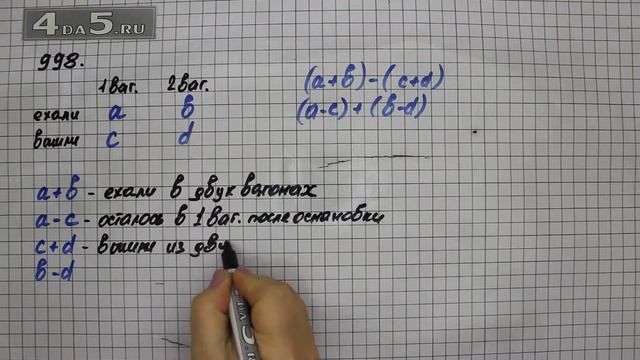 4DA5.RU
998.
1 ваг. 2 ваг.
ехали a b
вышли c d
(a+b)-(c+d)
(a-c)+(b-d)
a+b - ехали в двух вагонах
a-c - осталось в 1 ваг. после остановки
c+d - вышли из дву
b-d